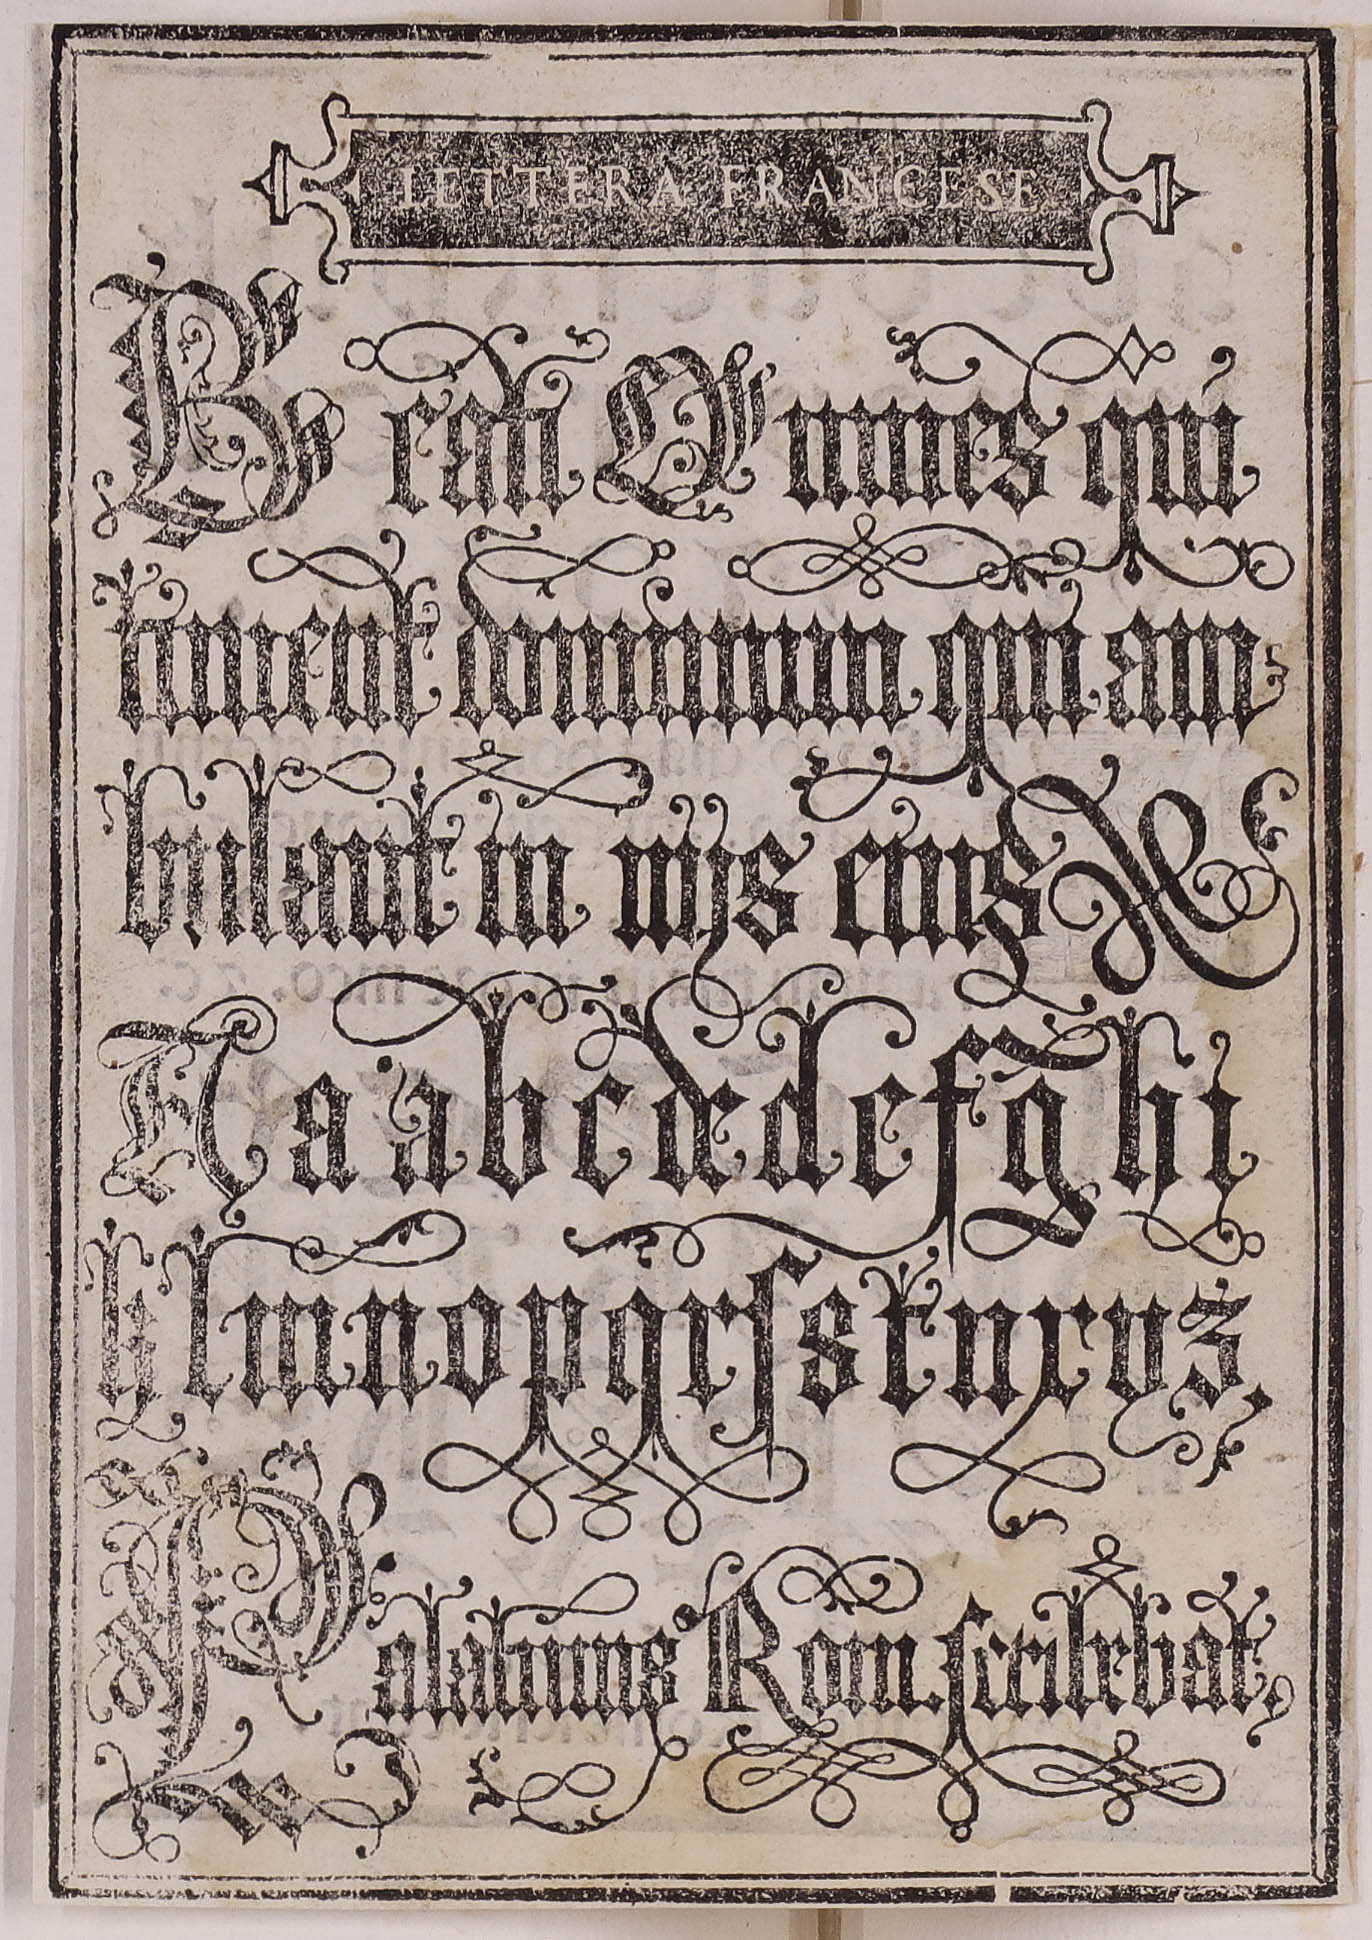 LETTERA FRANCESE
Beati Omnes qui
timent dominum qui am
bulant in uijs eius &
A a a b c de d e f g h i
k l m n o p q r ſ s t u x y z.
Palatinus Rom. ſcribebat,